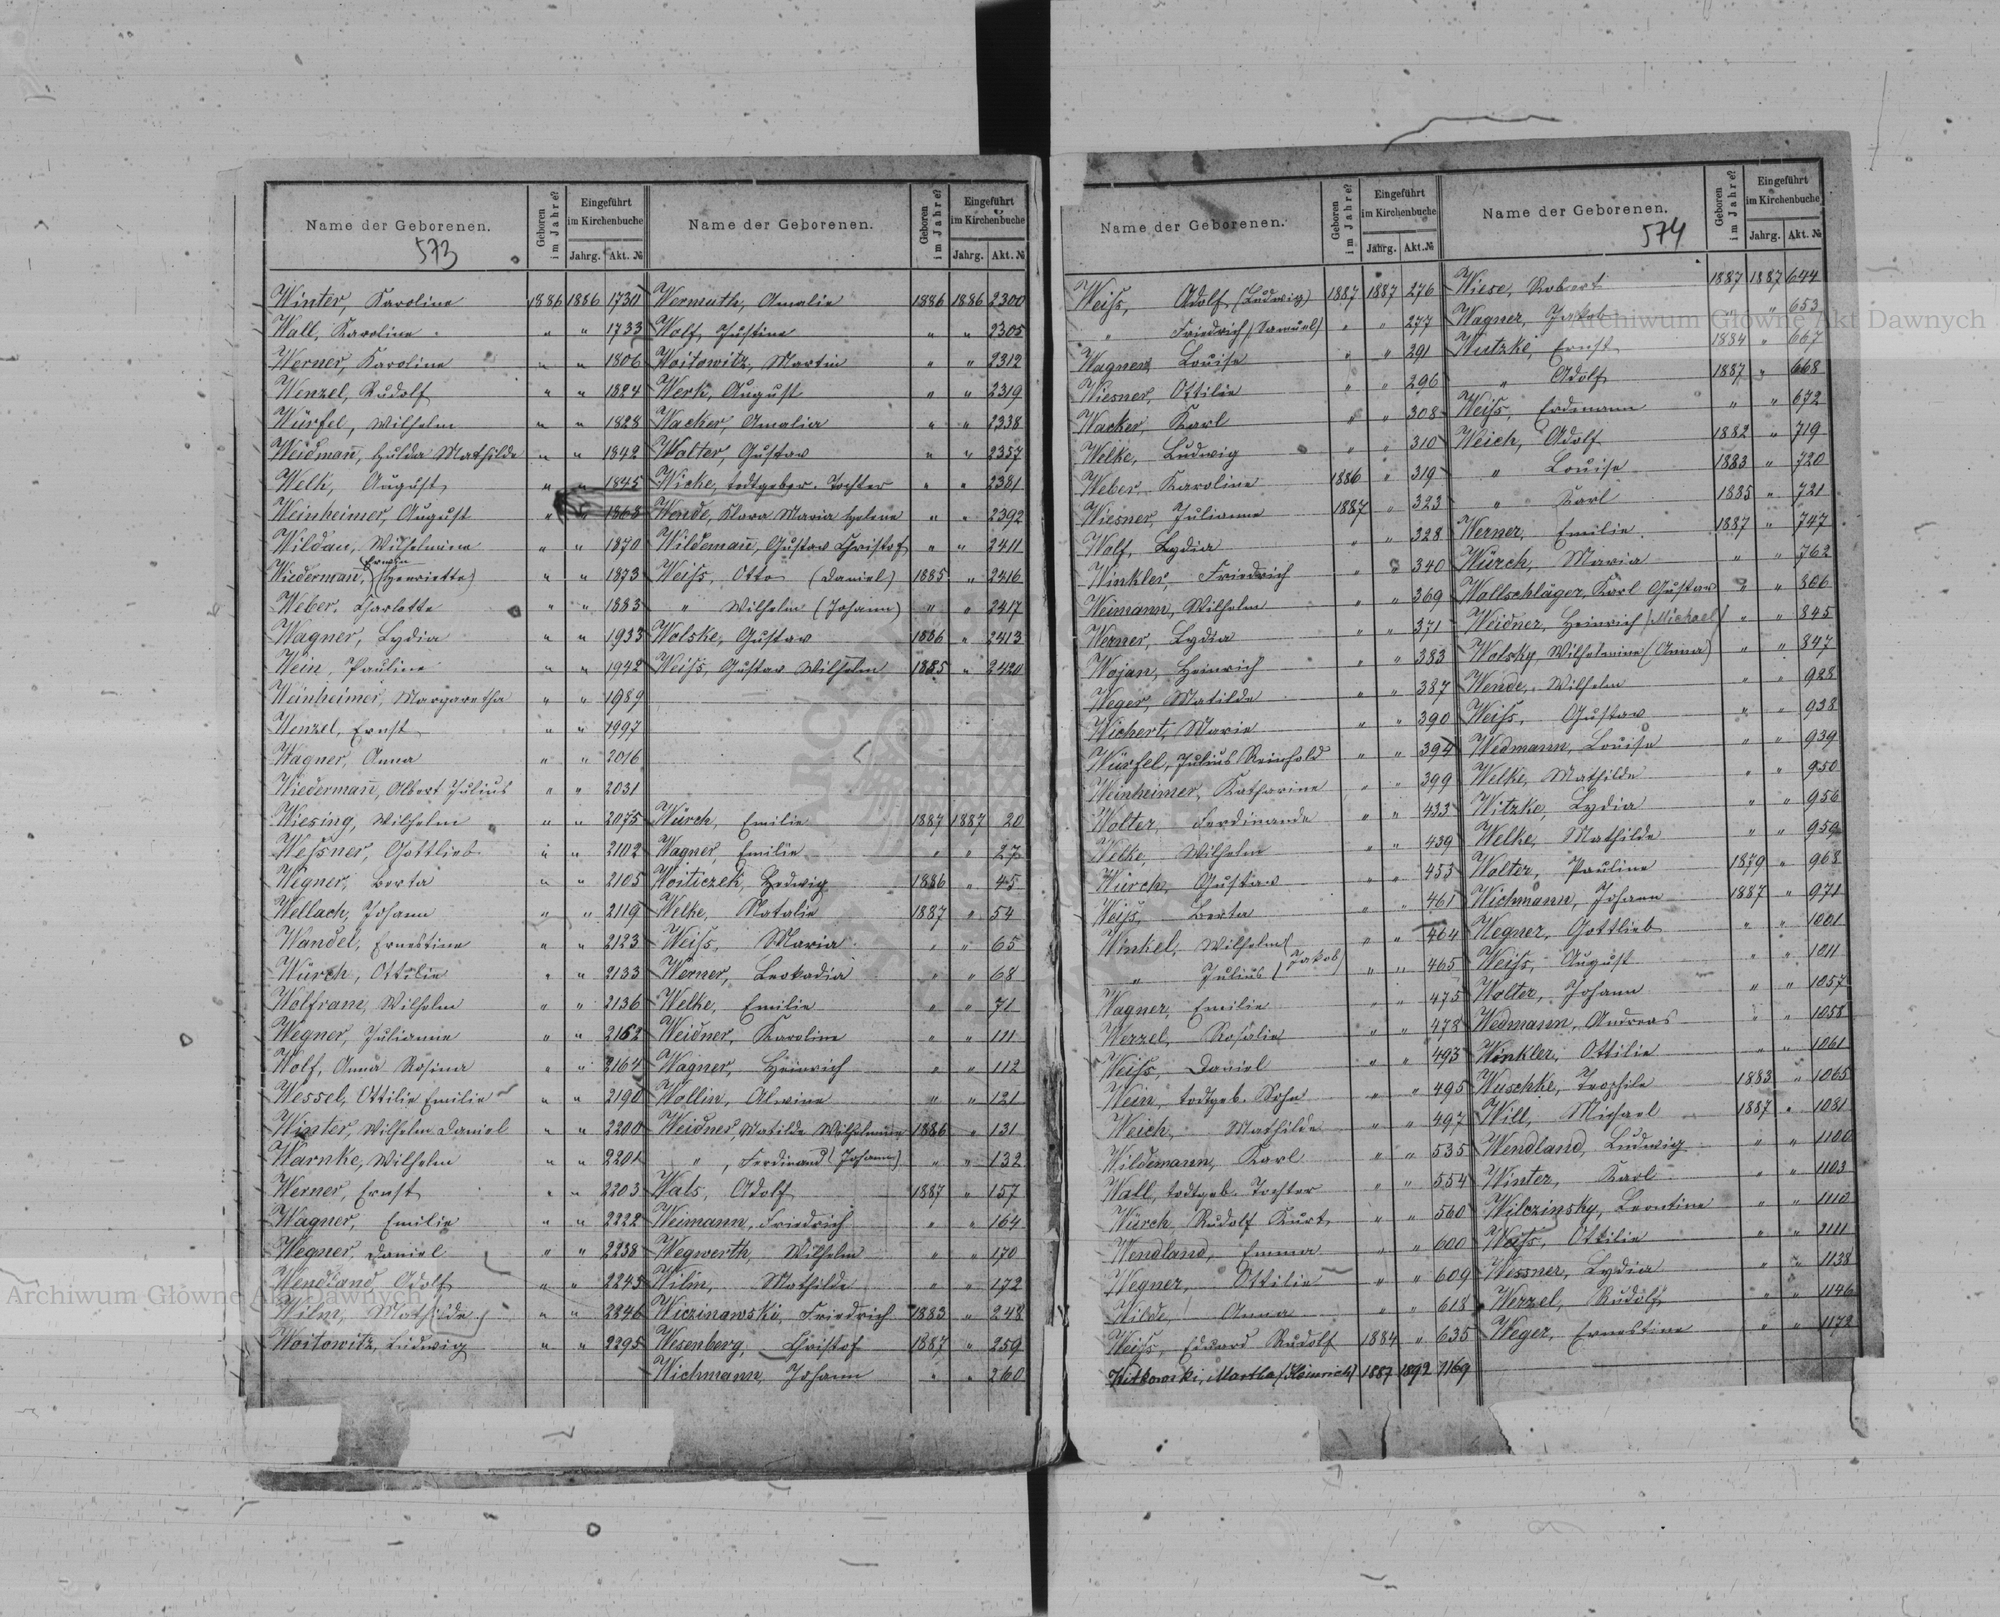 Name der Geborenen.
573
Geboren im Jahre?
Eingeführt im Kirchenbuche
Jahrg. Akt. №
Winter, Karoline 1886 1886 1730
Wall, Karoline " " 1733
Werner, Karoline " " 1806
Wenzel, Rudolf " " 1824
Würfel, Wilhelm " " 1828
Weidman̄, Hulda Mathilde " " 1842
Welk, August " " 1845
Weinheimer, August " " 1868
Wildau, Wilhelmine " " 1870
Wiederman̄, (Henriette) " " 1873
Weber, Charlotte " " 1883
Wagner, Lydia " " 1933
Wein, Pauline " " 1942
Weinheimer, Margaretha " " 1989
Wenzel, Ernst " " 1997
Wagner, Anna " " 2016
Wiederman̄, Albert Julius " " 2031
Wiesing, Wilhelm " " 2075
Weſsner, Gottlieb " " 2102
Wegner, Berta " " 2105
Wellach, Johann " " 2119
Wandel, Ernestine " " 2123
Würch, Ottilie " " 2133
Wolfram, Wilhelm " " 2136
Wegner, Julianne " " 2162
Wolf, Anna Rosina " " 2164
Wessel, Ottilie Emilie " " 2190
Winter, Wilhelm Daniel " " 2200
Warnke, Wilhelm " " 2201
Werner, Ernst " " 2203
Wagner, Emilie " " 2222
Wegner, Daniel " " 2238
Wendland Adolf " " 2245
Wilm, Mathilde " " 2246
Woitowitz, Ludwig " " 2295
Name der Geborenen.
Geboren im Jahre?
Eingeführt im Kirchenbuche
Jahrg. Akt. №
Wermuth, Amalie 1886 1886 2300
Wolf, Justine " " 2305
Woitowitz, Martin " " 2312
Werk, August " " 2319
Wacker, Amalia " " 2338
Wolter, Gustav " " 2357
Wicke, todtgebor. Tochter " " 2381
Wende, Klara Maria Helene " " 2392
Wildeman̄, Gustav Christof " " 2411
Weiſs, Otto (Daniel) 1885 " 2416
" Wilhelm (Johann) " " 2417
Wolske, Gustav 1886 " 2413
Weiſs, Gustav Wilhelm 1885 " 2420
Würch, Emilie 1887 1887 20
Wagner, Emilie " " 27
Woiticzek, Hedwig 1886 " 45
Welke, Natalie 1887 " 54
Weiſs, Maria " " 65
Werner, Leokadia " " 68
Welke, Emilie " " 71
Weidner, Karoline " " 111
Wagner, Heinrich " " 112
Wollin, Alwine " " 121
Weidner, Matilde Wilhelmine 1886 " 131
" , Ferdinand (Johann) " " 132
Wals, Adolf 1887 " 157
Weimann, Friedrich " " 164
Wegwerth, Wilhelm " " 170
Wilm, Mathilde " " 172
Wiczinawski, Friedrich 1883 " 248
Wesenberg, Christof 1887 " 259
Wichmann, Johann " " 260
Name der Geborenen.
Geboren im Jahre?
Eingeführt im Kirchenbuche
Jahrg. Akt. №
Weiſs, Adolf (Ludwig) 1887 1887 276
" Friedrich (Samuel) " " 277
Wagner, Louise " " 291
Wiesner, Ottilie " " 296
Wacker, Karl " " 308
Welke, Ludwig " " 310
Weber Karoline 1886 " 319
Wiesner, Julianne 1887 " 323
Wolf, Lydia " " 328
Winkler, Friedrich " " 340
Weimann, Wilhelm " " 369
Werner, Lydia " " 371
Wojan, Heinrich " " 383
Weger, Matilde " " 387
Wichert, Marie " " 390
Würfel, Julius Reinhold " " 394
Weinheimer, Katharine " " 399
Wolter, Ferdinande " " 433
Welke, Wilhelm " " 439
Würch, Gustav " " 453
Weiſs, Berta " " 461
Winkel, Wilhelm " " 464
" Julius (Jakob) " " 465
Wagner, Emilie " " 475
Werzel, Rosalie " " 478
Weiſs, Daniel " " 493
Wein, todtgeb. Sohn " " 495
Weich, Mathilde " " 497
Wildemann, Karl " " 535
Wall, todtgeb. Tochter " " 554
Würch Rudolf Kurt " " 560
Wendland, Emma " " 600
Wegner, Ottilie " " 609
Wilde, Anna " " 618
Weiſs, Eduard Rudolf 1884 " 635
Witkowski, Martha (Heinrich) 1887 1892 1169
Name der Geborenen.
574
Geboren im Jahre?
Eingeführt im Kirchenbuche
Jahrg. Akt. №
Wiese, Robert 1887 1887 644
Wagner, Jakob " " 653
Wutzke, Ernst 1884 " 667
" Adolf 1887 " 668
Weiſs, Erdmann " " 672
Weich, Adolf 1882 " 719
" Louise 1883 " 720
" Karl 1885 " 721
Werner, Emilie 1887 " 747
Würch, Maria " " 762
Wollschläger, Karl Gustav " " 806
Weidner, Heinrich (Michael) " " 845
Wolsky, Wilhelmine (Anna) " " 847
Wende, Wilhelm " " 928
Weiſs, Gustav " " 938
Wedmann, Louise " " 939
Welke, Mathilde " " 950
Witzke, Lydia " " 956
Welke, Mathilde " " 959
Wolter, Pauline 1879 " 968
Wichmann, Johann 1887 " 971
Wegner, Gottlieb " " 1001
Weiſs, August " " 1011
Wolter, Johann " " 1057
Wedmann, Andreas " " 1058
Winkler, Ottilie " " 1061
Wuschke, Teophile 1883 " 1065
Will, Michael 1887 " 1081
Wendland, Ludwig " " 1100
Winter, Karl " " 1103
Wilczinsky, Leontine " " 1110
Weiſs, Ottilie " " 1111
Wessner, Lydia " " 1138
Werzel, Rudolf " " 1146
Weger, Ernestine " " 1172
Archiwum Główne Akt Dawnych
Archiwum Główne Akt Dawnych